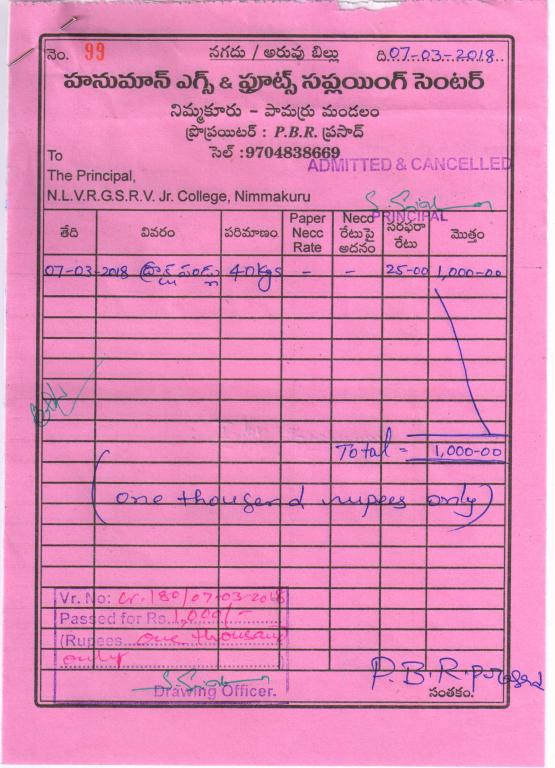 నెం. 99
నగదు / అరువు బిల్లు
ది.07-03-2018
హనుమాన్ ఎగ్స్ & ఫ్రూట్స్ సప్లయింగ్ సెంటర్
నిమ్మకూరు - పామర్రు మండలం
ప్రొప్రయిటర్ : P.B.R. ప్రసాద్
సెల్ :9704838669
ADMITTED & CANCELLED
To
The Principal,
N.L.V.R.G.S.R.V. Jr. College, Nimmakuru
PRINCIPAL
తేది వివరం పరిమాణం Paper Necc Rate Necc రేటుపై అదనం సరఫరా రేటు మొత్తం
07-03-2018 ద్రాక్ష పండ్లు 40kgs - - 25-00 1,000-00
Total = 1,000-00
(one thousand rupees only)
Vr. No: Cr.180/07-03-2018
Passed for Rs.1,000/-
(Rupees one thousand
only
Drawing Officer.
P.B.R.prasad
సంతకం.